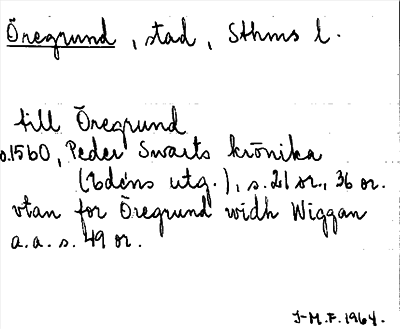 Öregrund, stad, Sthms l.
till Öregrund
o.1560, Peder Swarts krönika
(Edéns utg.), s. 21 or., 36 or.
vtan for Öregrund widh Wiggan
a.a. s. 49 or.
J-M.F. 1964.